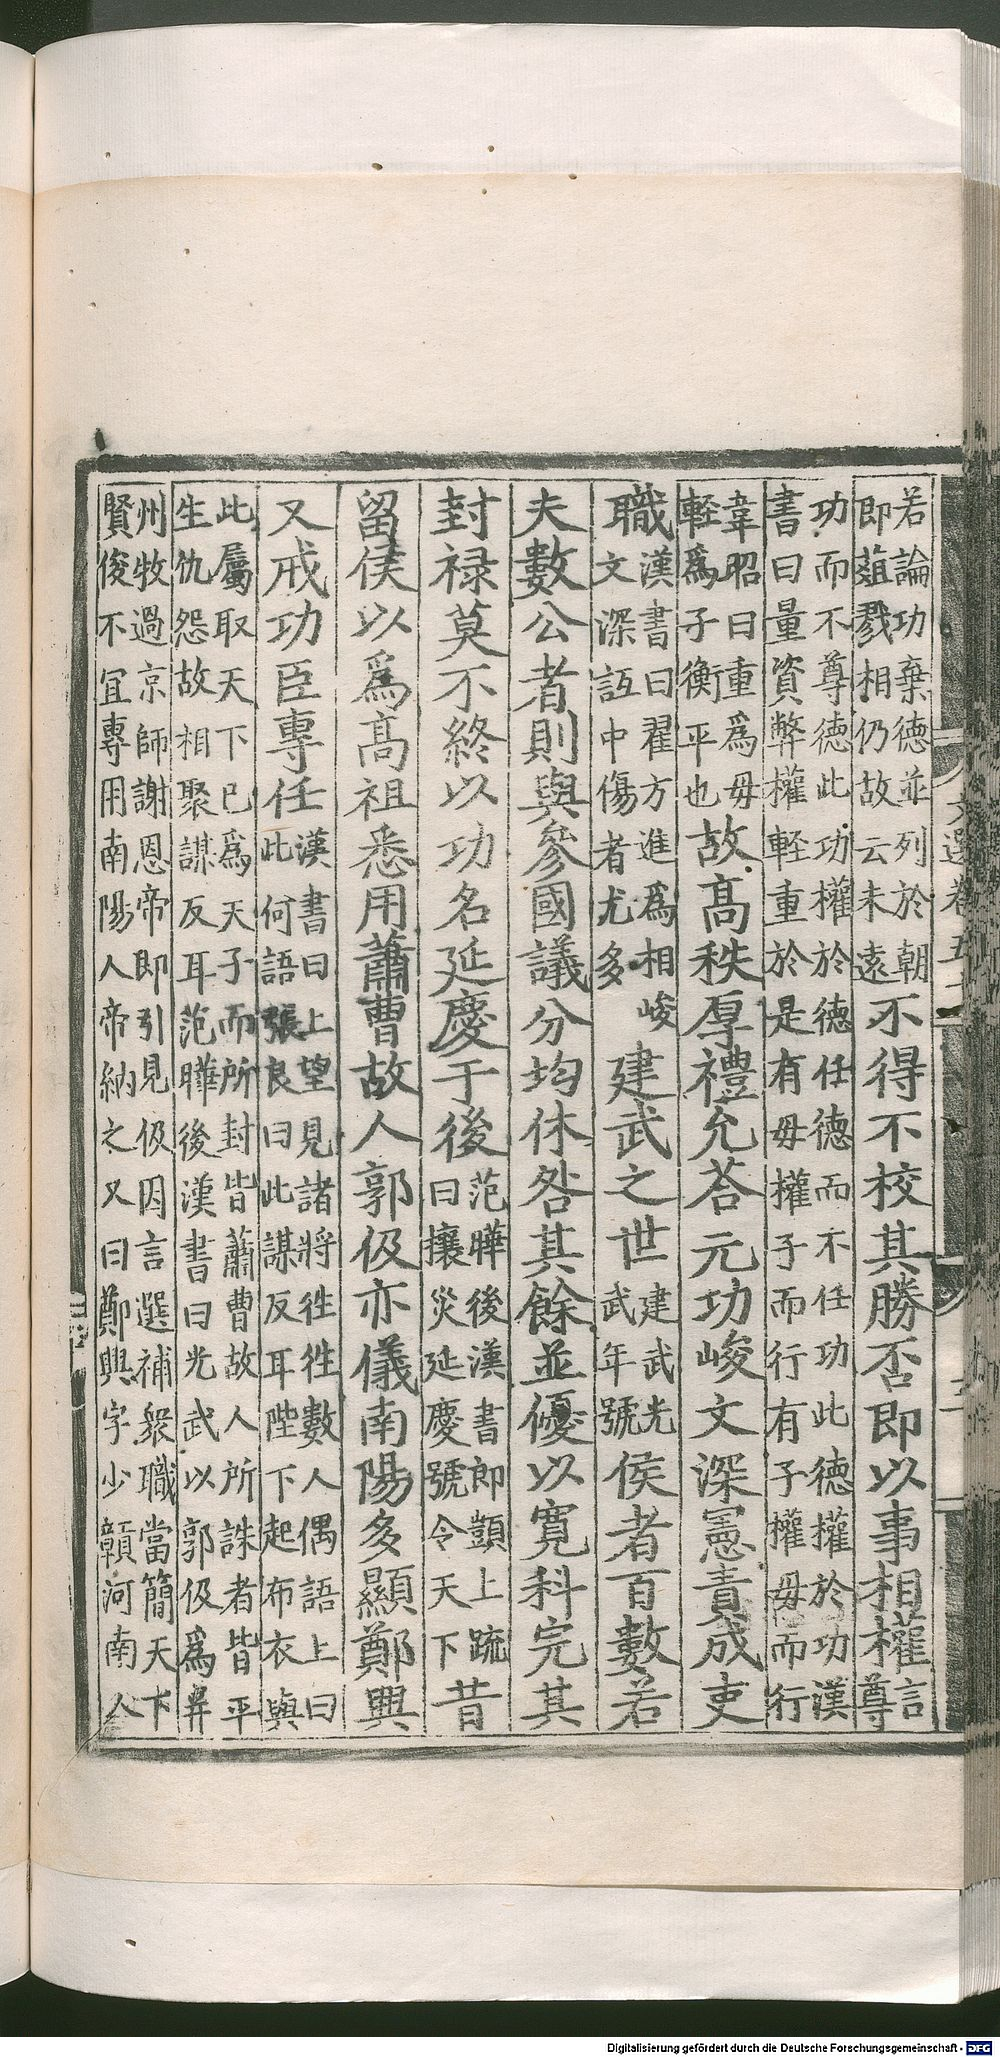 若論功棄德並列於朝即葅戮相仍故云未遠不得不校其勝否即以事相權言尊
功而不尊德此功權於德任德而不任功此德權於功漢書曰量資弊權輕重於是有毋權子而行有子權毋而行
韋昭曰重爲毋輕爲子衡平也故高秩厚禮允荅元功峻文深憲責成吏
職漢書曰翟方進爲相峻文深詆中傷者尤多建武之世建武光武年號侯者百數若
夫數公者則與參國議分均休咎其餘並優以寬科完其
封祿莫不終以功名延慶于後范曄後漢書郎顗上疏曰攘災延慶號令天下昔
留侯以爲高祖悉用蕭曹故人郭伋亦儀南陽多顯鄭興
又戒功臣專任漢書曰上望見諸將徃徃數人偶語上曰此何語張良曰此謀反耳陛下起布衣與
此屬取天下已爲天子而所封皆蕭曹故人所誅者皆平生仇怨故相聚謀反耳范曄後漢書曰光武以郭伋爲并
州牧過京師謝恩帝即引見伋因言選補衆職當簡天下賢俊不宜專用南陽人帝納之又曰鄭興字少贛河南人
Digitalisierung gefördert durch die Deutsche Forschungsgemeinschaft - DFG